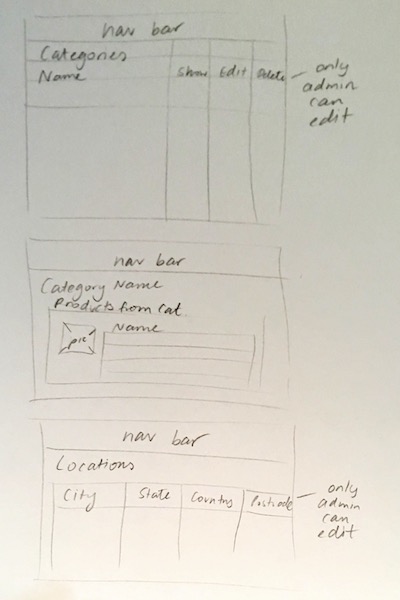 nav bar
Categories
Name Show Edit Delete
only
admin
can
edit
nav bar
Category Name
Products from cat.
pic Name
nav bar
Locations
City State Country Postcode
only
admin
can
edit